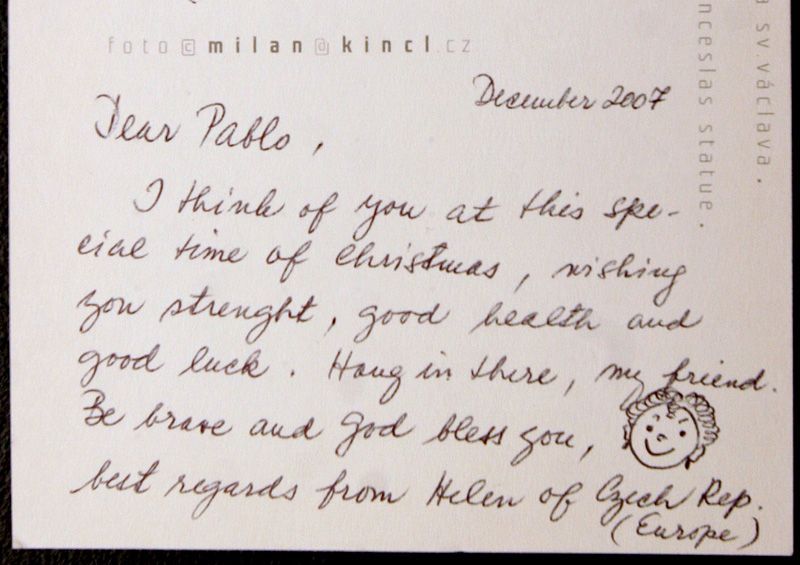 foto©milan@kincl.cz
December 2007
Dear Pablo,
I think of you at this spe-
cial time of Christmas, wishing
you strenght, good health and
good luck. Hang in there, my friend.
Be brave and God bless you,
best regards from Helen of Czech Rep.
(Europe)
nceslas statue.
a sv.václava.